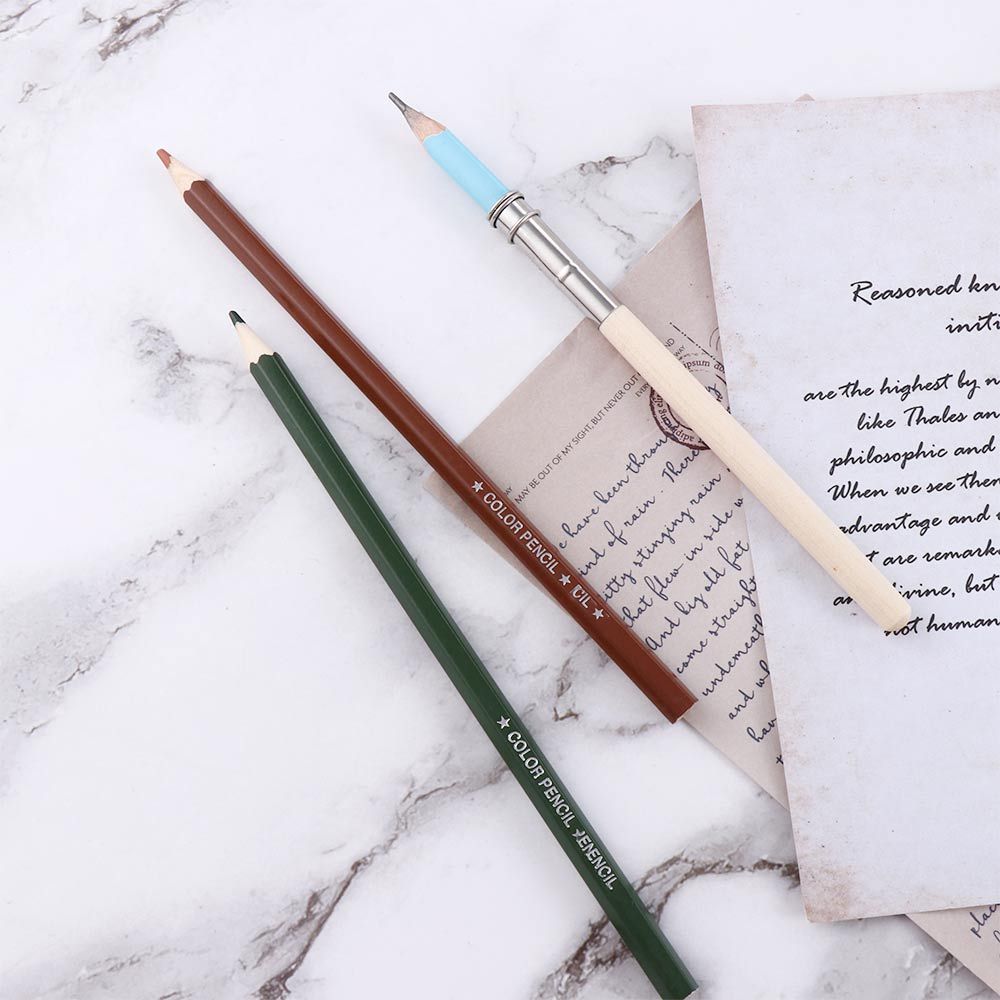 ★ COLOR PENCIL ★ CIL ★
★ COLOR PENCIL ★ENENCIL
MAY BE OUT OF MY SIGHT, BUT NEVER OUT
WAY
ipsum
adipiscing
have been through
ind of rain. There
itty stinging rain
that flew in side w
And big old fat
come straight
underneath
and wh
hav
Reasoned kn
initi
are the highest by n
like Thales an
philosophic and
When we see them
advantage and
t are remark
divine, but
not human